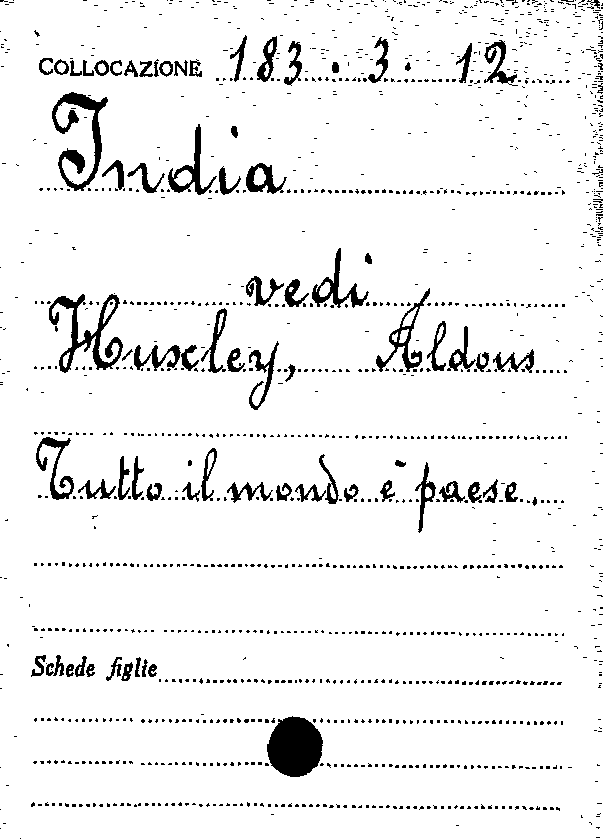 COLLOCAZIONE 183 . 3 . 12
India
vedi
Huxley, Aldous
Tutto il mondo è paese.
Schede figlie